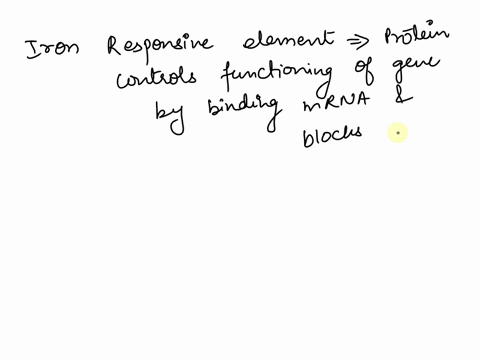 Iron Responsive element ⇒ Protein
controls functioning of gene
by binding mRNA &
blocks